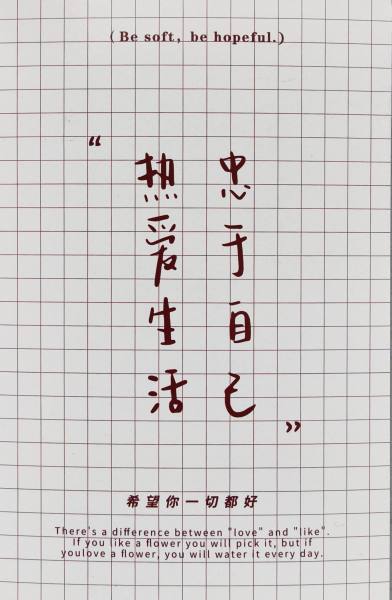 （Be soft，be hopeful.）
“
忠于自己
热爱生活
”
希望你一切都好
There's a difference between "love" and "like".
If you like a flower you will pick it, but if
youlove a flower, you will water it every day.